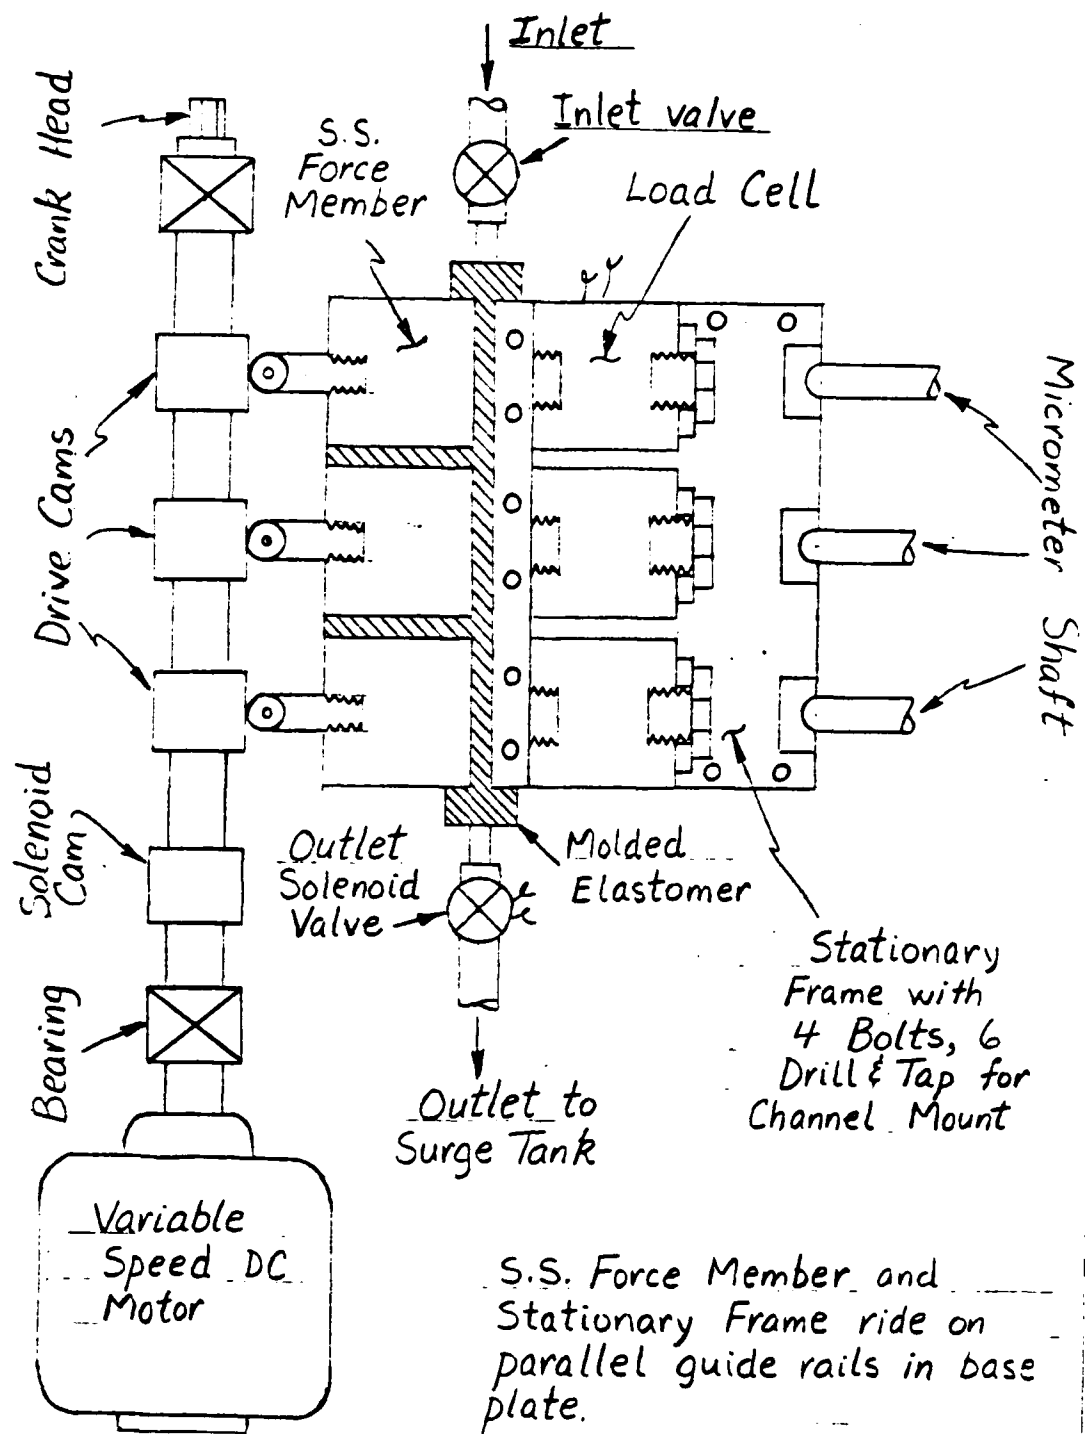 Inlet
Inlet valve
Crank Head
S.S.
Force
Member
Load Cell
Drive Cams
Micrometer Shaft
Solenoid
Cam
Outlet
Solenoid
Valve
Molded
Elastomer
Bearing
Stationary
Frame with
4 Bolts, 6
Drill & Tap for
Channel Mount
Outlet to
Surge Tank
Variable
Speed DC
Motor
S.S. Force Member and
Stationary Frame ride on
parallel guide rails in base
plate.